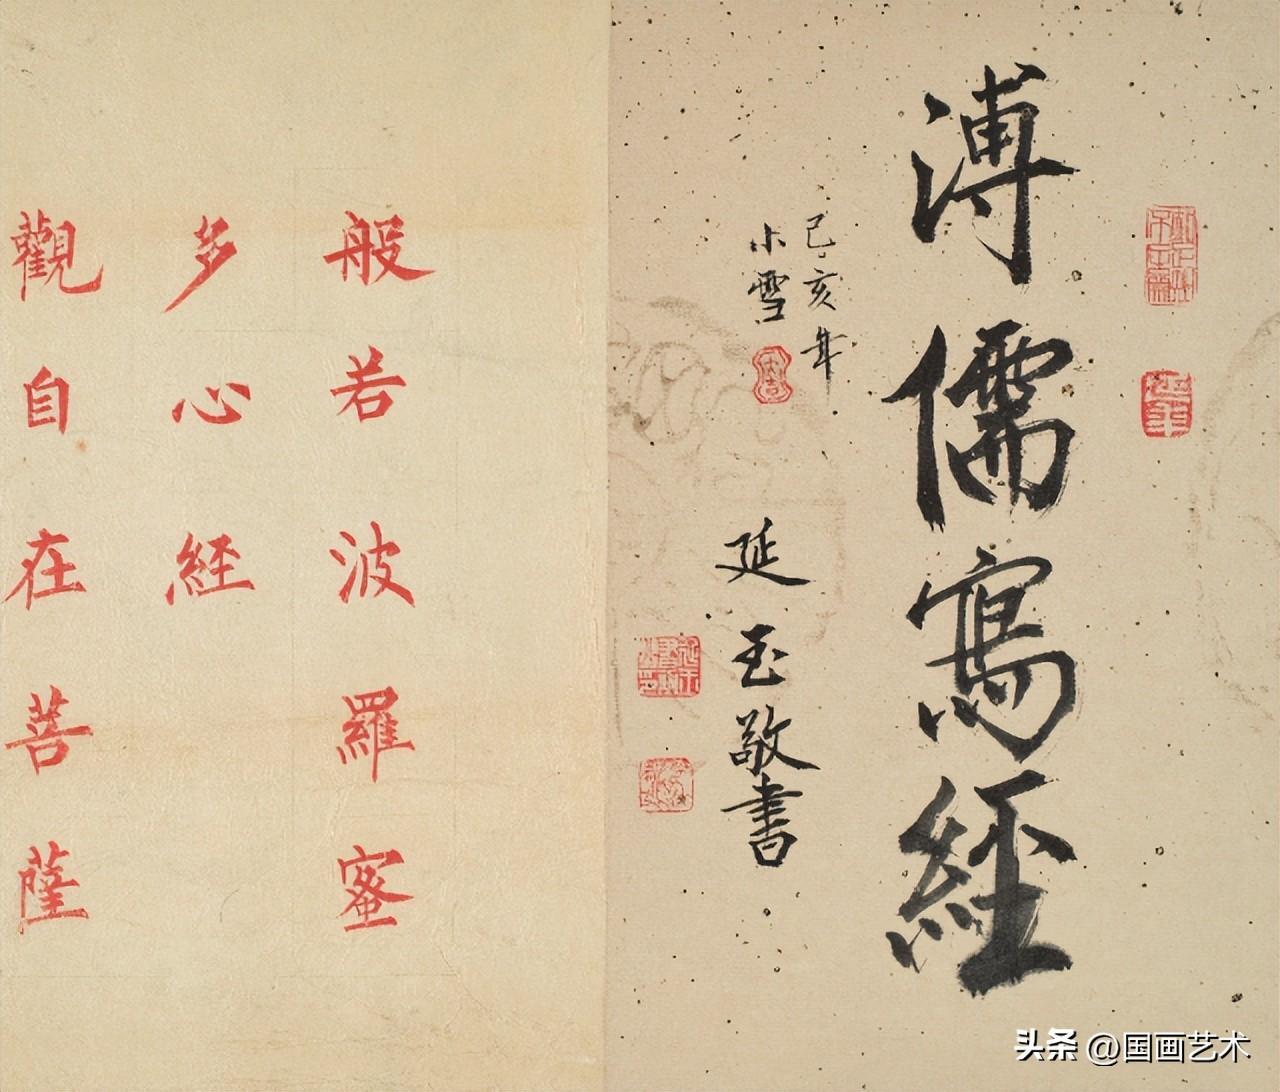 溥儒寫經
己亥年
小雪
延玉敬書
般若波羅蜜
多心経
觀自在菩薩
头条 @国画艺术